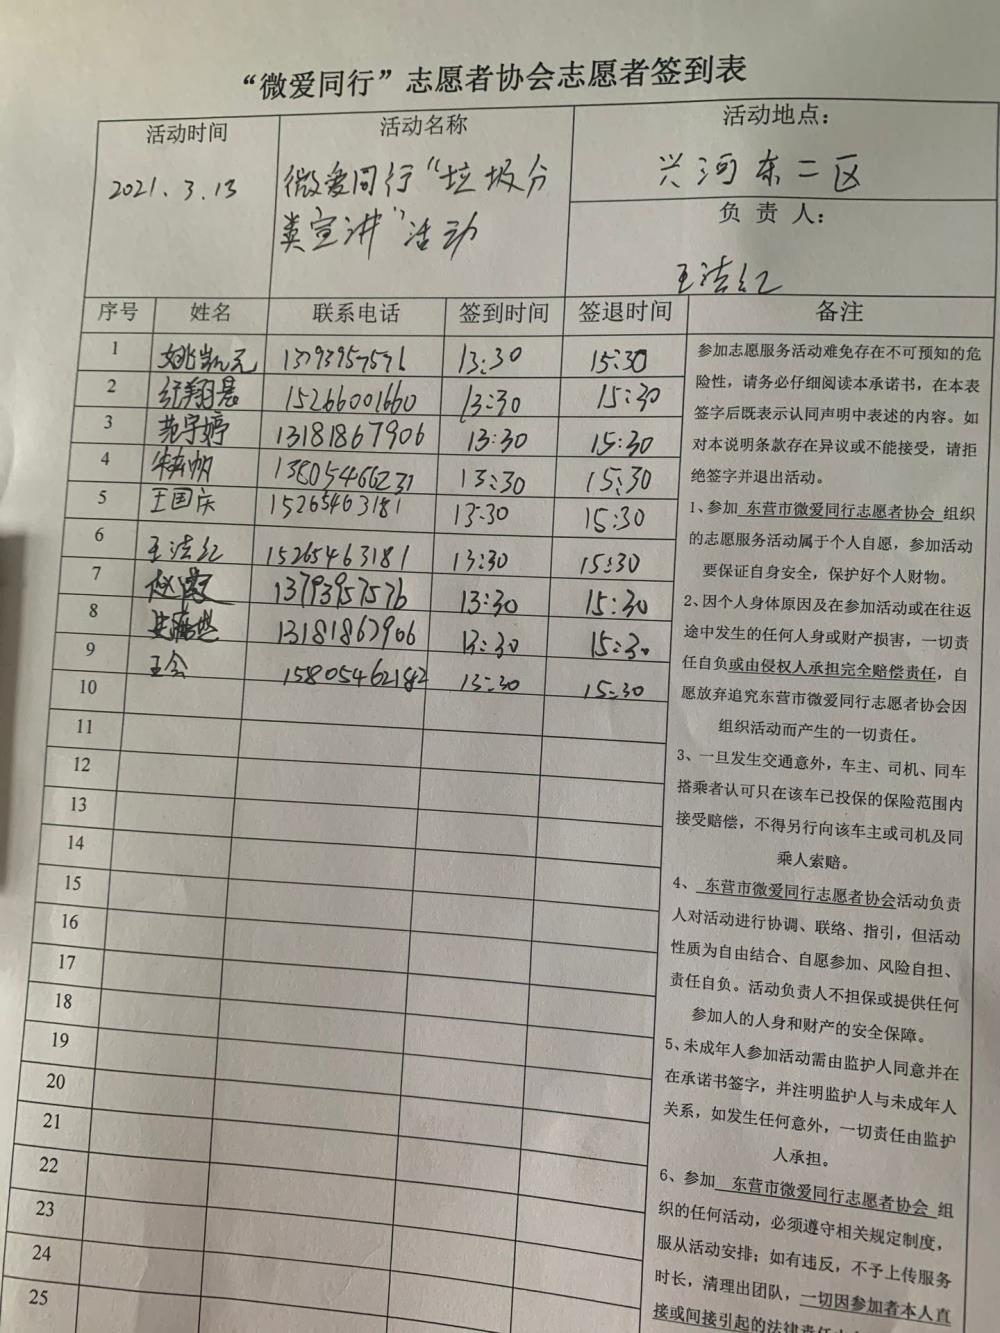 “微爱同行”志愿者协会志愿者签到表
活动时间 活动名称 活动地点：
2021.3.13 微爱同行“垃圾分类宣讲”活动 兴河东二区
负责人：
王洁红
序号 姓名 联系电话 签到时间 签退时间 备注
1 姚凯元 13793957576 13:30 15:30
2 翔晨 15266001660 13:30 15:30
3 范宇婷 13181867906 13:30 15:30
4 帆 13805466231 13:30 15:30
5 王国庆 15265463181 13:30 15:30
6 王洁红 15265463181 13:30 15:30
7 赵 13793957576 13:30 15:30
8 13181867906 13:30 15:30
9 王会 15805462182 13:30 15:30
10
11
12
13
14
15
16
17
18
19
20
21
22
23
24
25
参加志愿服务活动难免存在不可预知的危
险性，请务必仔细阅读本承诺书，在本表
签字后既表示认同声明中表述的内容。如
对本说明条款存在异议或不能接受，请拒
绝签字并退出活动。
1、参加 东营市微爱同行志愿者协会 组织
的志愿服务活动属于个人自愿，参加活动
要保证自身安全，保护好个人财物。
2、因个人身体原因及在参加活动或在往返
途中发生的任何人身或财产损害，一切责
任自负或由侵权人承担完全赔偿责任，自
愿放弃追究东营市微爱同行志愿者协会因
组织活动而产生的一切责任。
3、一旦发生交通意外，车主、司机、同车
搭乘者认可只在该车已投保的保险范围内
接受赔偿，不得另行向该车主或司机及同
乘人索赔。
4、 东营市微爱同行志愿者协会活动负责
人对活动进行协调、联络、指引，但活动
性质为自由结合、自愿参加、风险自担、
责任自负。活动负责人不担保或提供任何
参加人的人身和财产的安全保障。
5、未成年人参加活动需由监护人同意并在
在承诺书签字，并注明监护人与未成年人
关系，如发生任何意外，一切责任由监护
人承担。
6、参加 东营市微爱同行志愿者协会 组
织的任何活动，必须遵守相关规定制度，
服从活动安排；如有违反，不予上传服务
时长，清理出团队，一切因参加者本人直
接或间接引起的法律责任